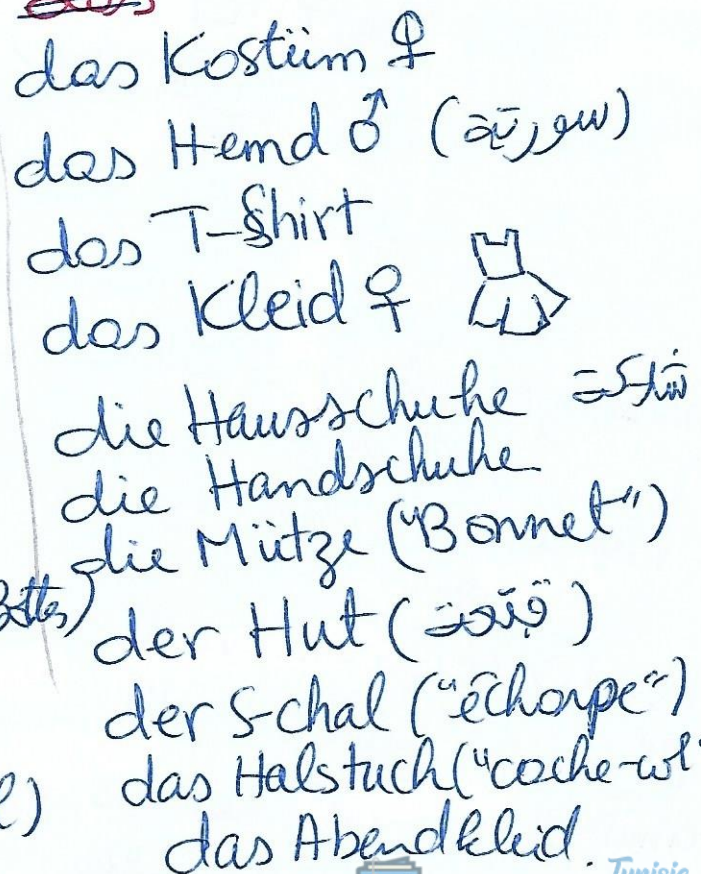 das Kostüm ♀
das Hemd ♂ (سورية)
das T-Shirt
das Kleid ♀
die Hausschuhe
die Handschuhe
die Mütze ("Bonnet")
der Hut (قبعة)
der Schal ("écharpe")
das Halstuch ("cache-col"
das Abendkleid.
Tunisie